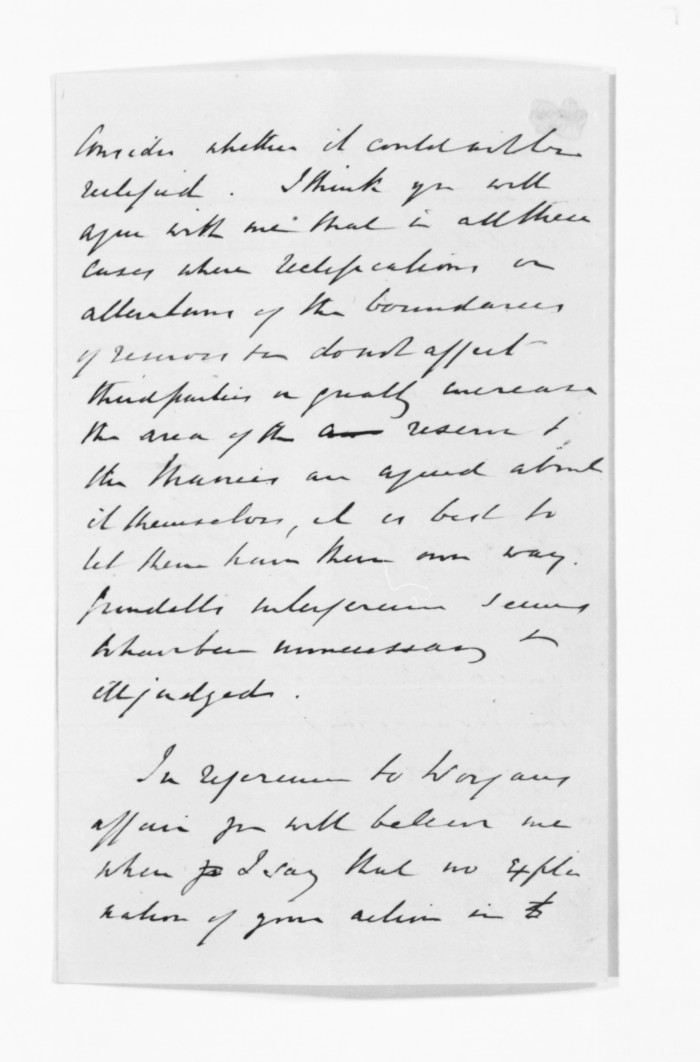 Consider whether it could not be
rectified. I think you will
agree with me that in all these
cases where rectifications or
alterations of the boundaries
of reserves &c do not affect
third parties or greatly increase
the area of the reserve &
the Maories are agreed about
it themselves, it is best to
let them have their own way.
Grindells interference seems
to have been unnecessary &
illjudged.
In reference to Worgans
affair you will believe me
when I say that no expla
nation of your action in